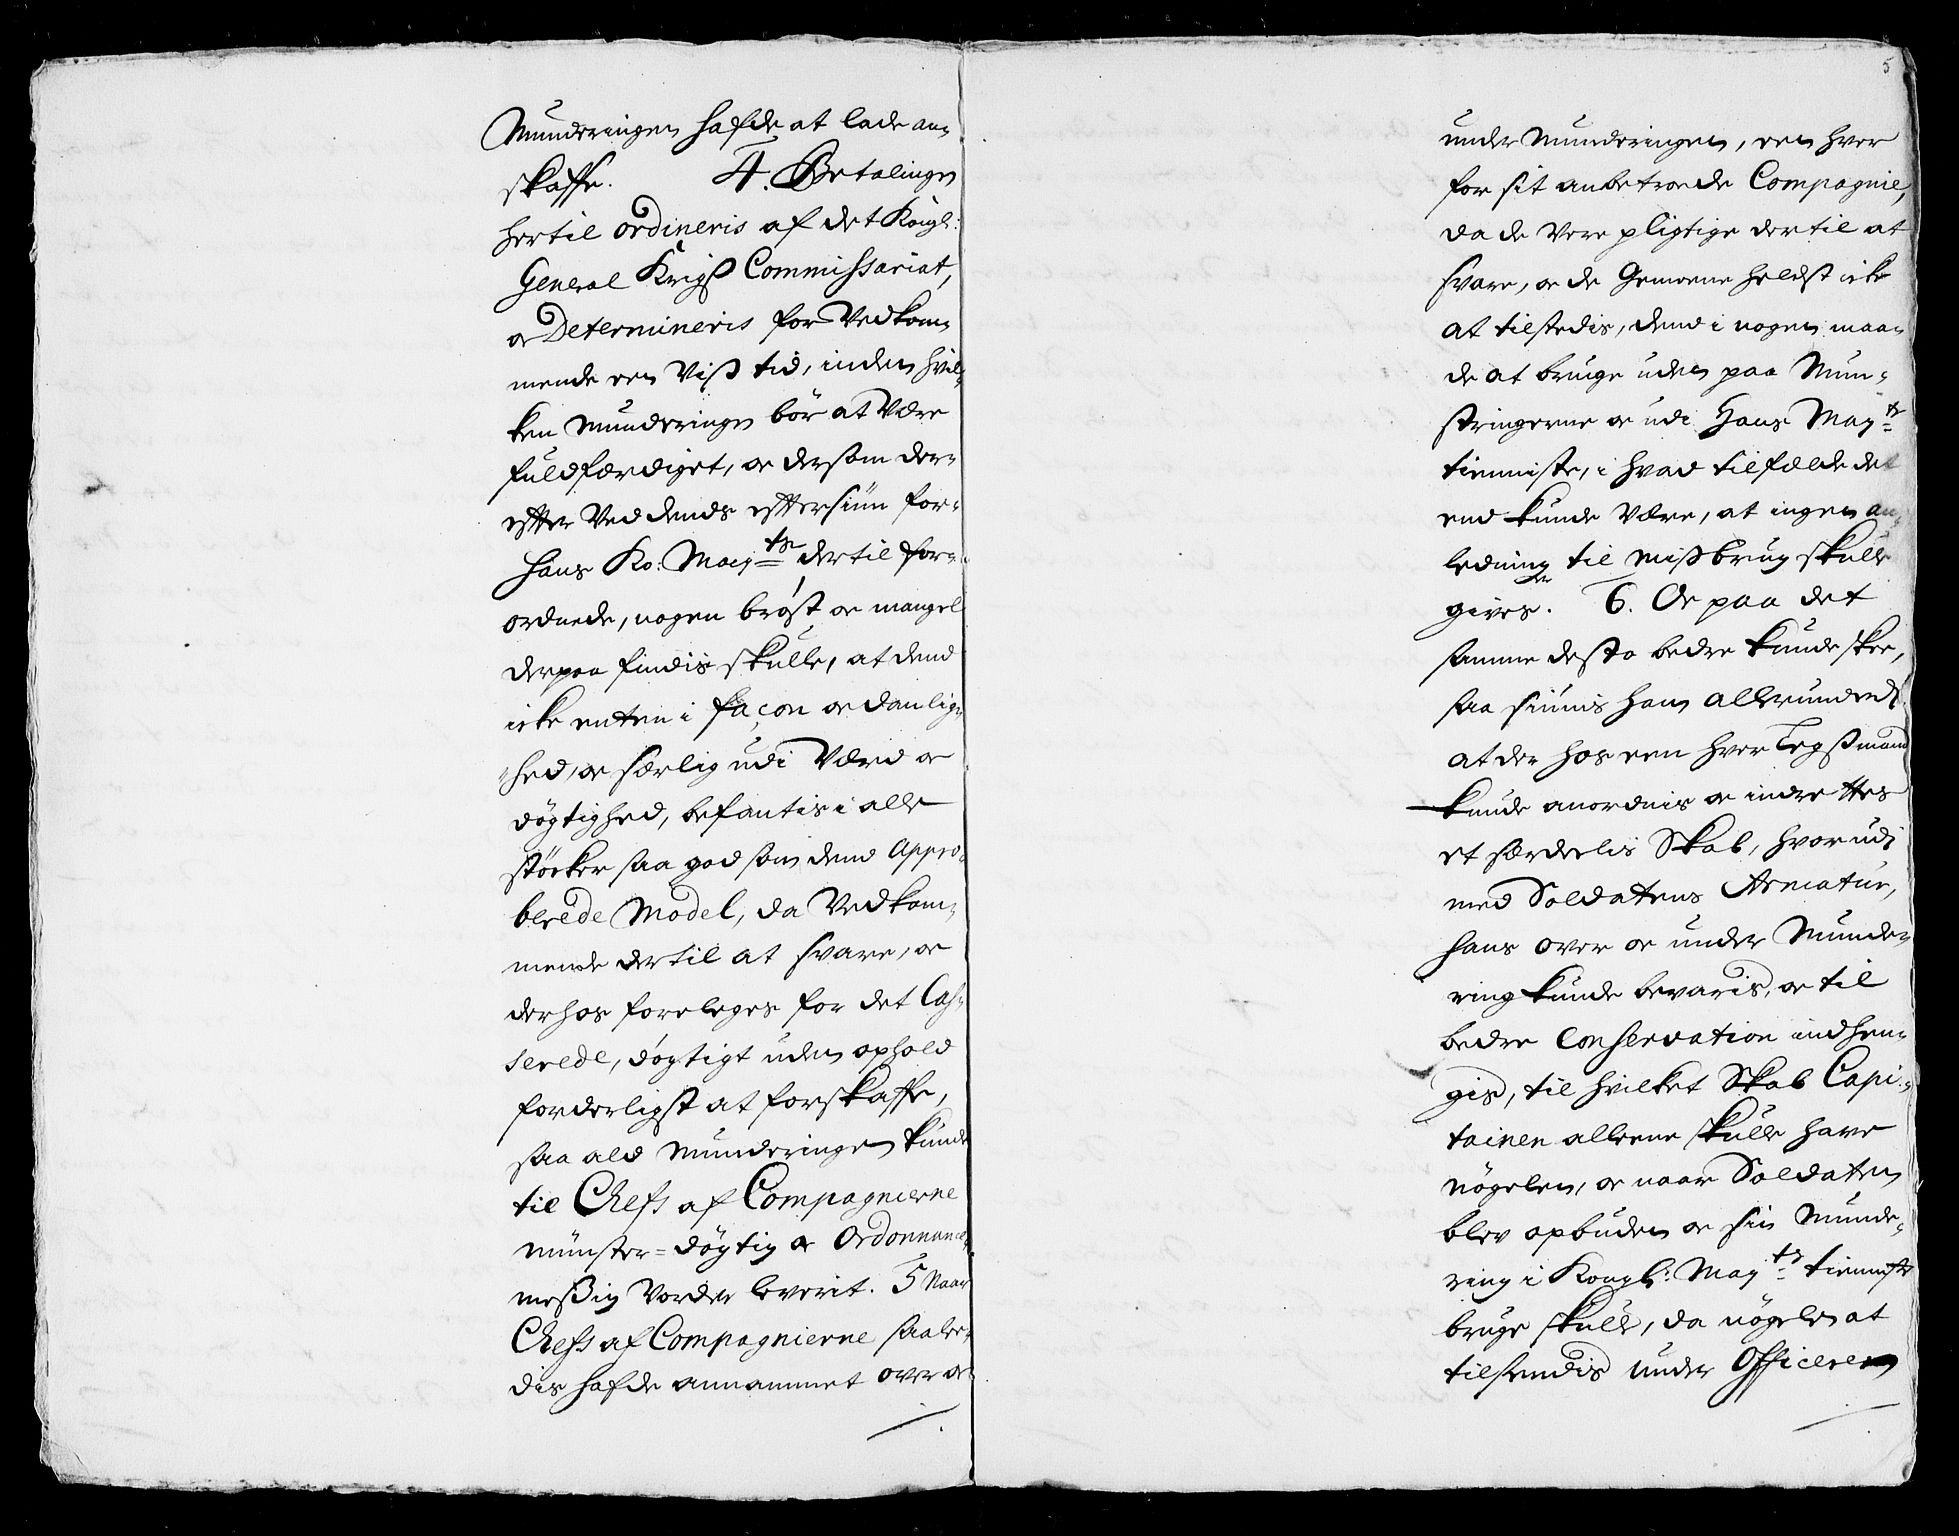 Munderingen hafde at lade an-
skaffe. 4. Betalingen
hertil ordineris af det Kongl:
General Krigß Commissariat,
oc Determineris for Vedkom-
mende een Viß tid, inden hvil-
ken Munderingen bör at Være
fuldfærdiget, oc dersom der-
effter Ved dends effersiun for
Hans Ko: Mayts dertil for-
ordnede, nogen bröst oc mangel
derpaa findis skulle, at dend
icke enten i façon oc danlig-
hed, oc særlig udi Værd oc
dögtighed, befantis i alle
störker saa god som dend Appro-
berede Model, da Vedkom-
mende dertil at svare, oc
derhos foreleges for det Cas-
serede, dögtigt uden ophold
forderligst at forskaffe,
saa ald Munderingen kunde
til Chefs af Compagnierne
münster-dögtig oc Ordonnance-
meßig Vorder leverit. 5 Naar
Chefs af Compagnierne saale-
dis hafde annammet over oc
5
under Munderingen, een hver
for sit anbetroede Compagnie,
da de Vere pligtige dertil at
svare, oc de Gemeene heldst icke
at tilstedis, dend i nogen maa-
de at bruge uden paa Mun-
stringerne oc udi Hans Mayts
tienniste, i hvad tilfælde det
end kunde Være, at ingen an-
ledning til mißbrug skulle
gives. 6. Oc paa det
samme desto bedre kunde skee,
saa siunis ham allerunderd:
at der hos een hver Legßmand
kunde anordnis oc indrettes
et særdeelis Skab, hvorudi
med Soldatens Armatur,
hans over oc under Munde-
ring kunde bevaris, oc til
bedre Conservation indhen-
gis, til hvilket Skab Capi-
tainen alleene skulle have
nögelen, oc naar Soldaten
blev opbuden oc sin Munde-
ring i Kongl: Mayts tienniste
bruge skulle, da nögelen at
tilsendis under Officeren